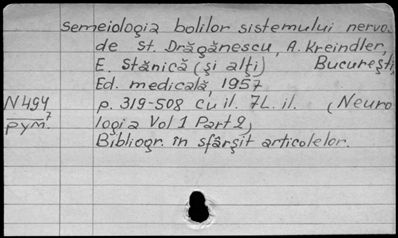 Semeiologia bolilor sistemului nervos
de St. Drăgănescu, A. Kreindler,
E. Stănică (și alți) București,
Ed. medicală, 1957
N494 p. 319-508 cu il. 7L. il. (Neuro
рум. 7 logia Vol 1 Part 2)
Bibliogr. în sfârșit articolelor.